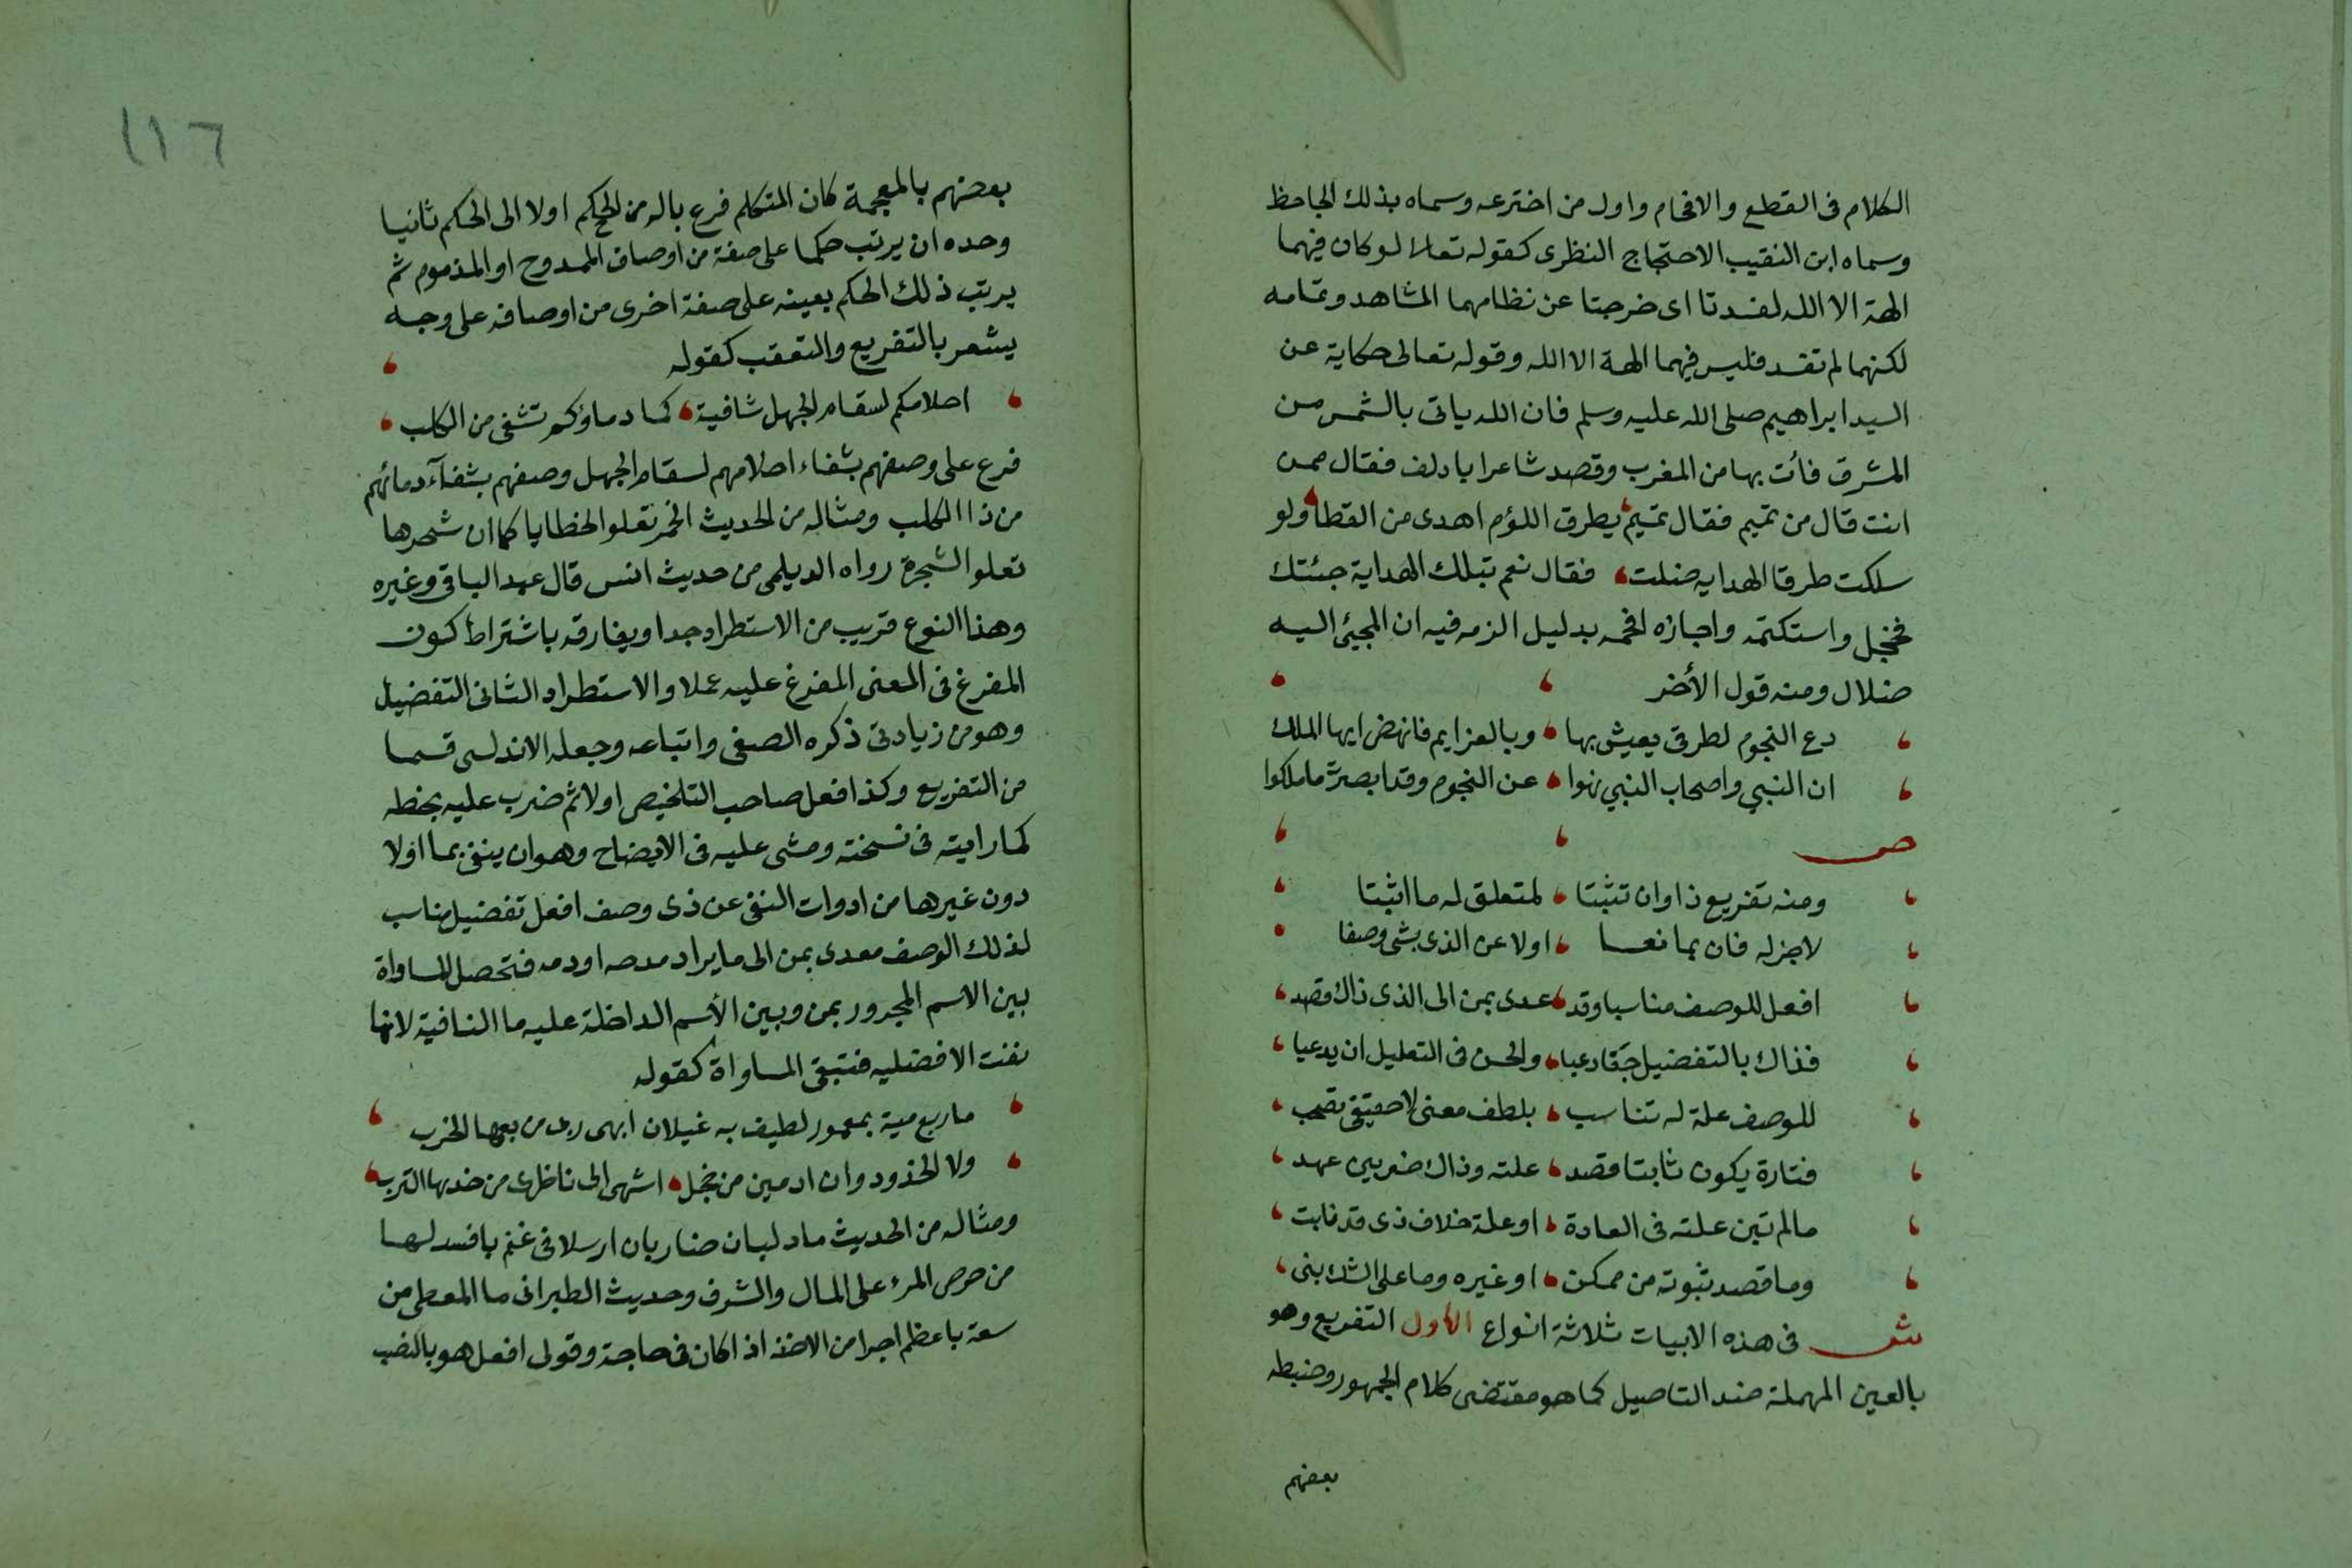 الكلام فى القطع والافحام واول من اخترعه وسماه بذلك الجاحظ
وسماه ابن النقيب الاحتجاج النظرى كقوله تعالا لو كان فيهما
الهة الا الله لفسدتا اى خرجتا عن نظامهما المشاهد وتمامه
لكنهما لم تفسد فليس فيهما الهة الا الله وقوله تعالى حكاية عن
السيد ابراهيم صلى الله عليه وسلم فان الله ياتى بالشمس من
المشرق فأت بها من المغرب وقصد شاعر ابا دلف فقال ممن
انت قال من تميم فقال تميم يطرق اللؤم اهدى من القطا ولو
سلكت طرقا الهدايه ضلت فقال نعم بتلك الهداية جئتك
فخجل واستكتمه واجازه افحمه بدليل الزمه فيه ان المجيئ اليه
ضلال ومنه قول الأخر
دع النجوم لطرقى يعيش بها وبالعزايم فانهض ايها الملك
ان النبي واصحاب النبي نهوا عن النجوم وقد ابصرت ما ملكوا
ص
ومنه تفريع ذا وان تثبتا لمتعلق له ما اثبتا
لاخر له فان بما نعا اولا عن الذى بشى وصفا
افعل للوصف مناسبا وقد عدى بمن الى الذى ذاك قصد
فذاك بالتفضيل حقا دعيا والحسن فى التعليل ان يدعيا
للوصف علة له تناسب بلطف معنى لا حقيقى تصحب
فتارة يكون ثابتا قصد علته وذاك ضربين عهد
ما لم تبن علته فى العادة او علة خلاف ذى قد نابت
وما قصد ثبوته من ممكن او غيره وما على الشك بنى
ش فى هذه الابيات ثلاثة انواع الأول التفريع وهو
بالعين المهملة ضد التاصيل كما هو مقتضى كلام الجمهور وضبطه
بعضهم
١١٦
بعضهم بالمعجمة كان المتكلم فرع باله من الحكم اولا الى الحكم ثانيا
وحده ان يرتب حكما على صفة من اوصاف الممدوح او المذموم ثم
يرتب ذلك الحكم بعينه على صفة اخرى من اوصافه على وجه
يشعر بالتفريع والتعقب كقوله
احلامكم لسقام الجهل شافية كما دماؤكم تشفى من الكلب
فرع على وصفهم بشفاء احلامهم لسقام الجهل وصفهم بشفآء دمائهم
من ذا الكلب ومثاله من الحديث الخمر تعلو الخطايا كما ان شجرها
تعلو الشجرة رواه الديلمى من حديث انس قال عبد الباقى وغيره
وهذا النوع قريب من الاستطراد جدا ويفارقه باشتراط كون
المفرغ فى المعنى المفرغ عليه عملا والاستطراد الثانى التفضيل
وهو من زيادتى ذكره الصفى واتباعه وجعله الاندلسى قسما
من التفريع وكذا فعل صاحب التلخيص اولا ثم ضرب عليه بخطه
كما رايته فى نسخته ومشى عليه فى الايضاح وهو ان ينفى بما اولا
دون غيرها من ادوات النفى عن ذى وصف افعل تفضيل مناسب
لذلك الوصف معدى بمن الى ما يراد مدحه او ذمه فتحصل المساواة
بين الاسم المجرور بمن وبين الأسم الداخلة عليه ما النافية لانها
نفت الافضليه فتبقى المساواة كقوله
ما ربع مية بمعمور لطيف به غيلان ابهى ربى من ربعها الخرب
ولا الخدود وان ادمين من خجل اشهى الى ناظرى من خدها الترب
ومثاله من الحديث ما دلبان ضاريان ارسلا فى غنم بافسد لها
من حرص المرء على المال والشرف وحديث الطبرانى ما المعطى من
سعة باعظم اجرا من الاخذ اذا كان فى حاجة وقولى افعل هو بالنصب